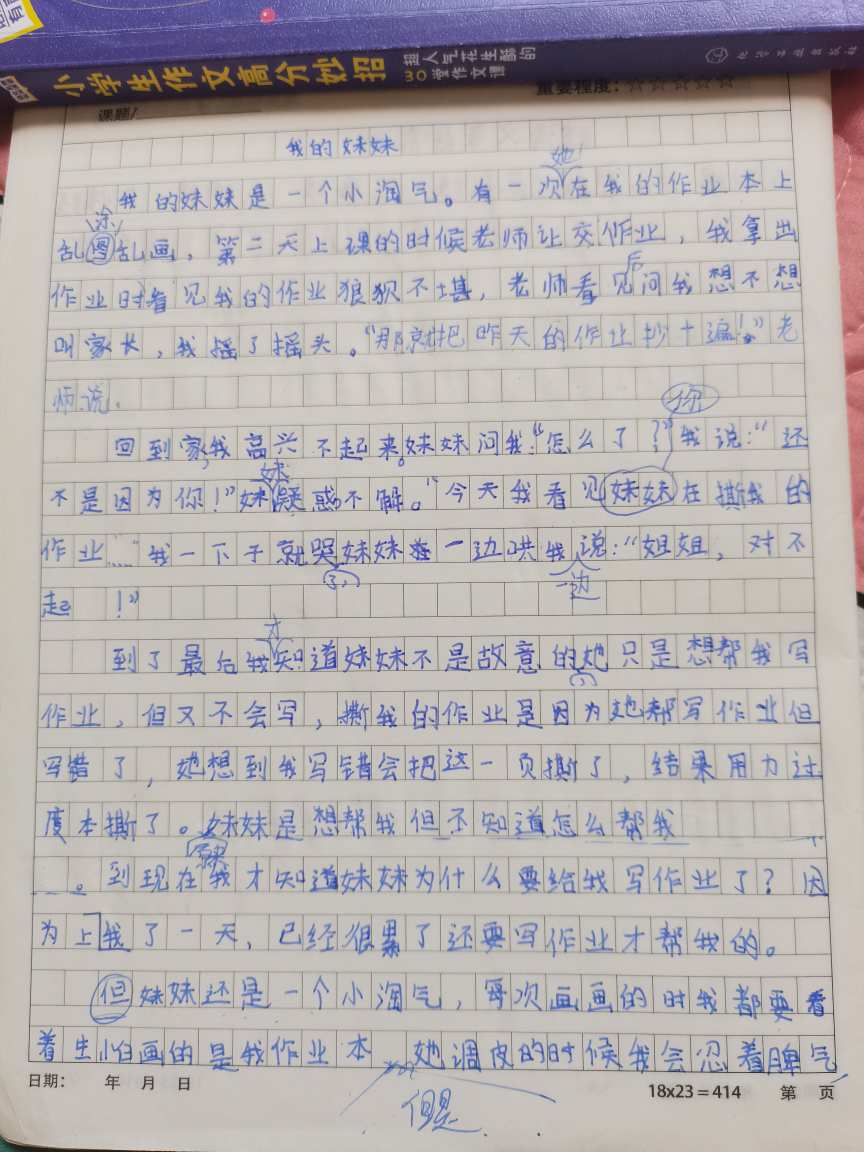 小学生作文高分妙招
超人气花生酥的
30堂作文课
化学工业出版社
重要程度：☆☆☆☆☆
课题/
我的妹妹
我的妹妹是一个小淘气。有一次她在我的作业本上
乱涂乱画，第二天上课的时候老师让交作业，我拿出
作业时看见我的作业狼狈不堪，老师看见后问我想不想
叫家长，我摇了摇头。“那就把昨天的作业抄十遍！”老
师说.
回到家，我高兴不起来。妹妹问我：“怎么了？”我说：“还
不是因为你！”妹妹疑惑不解。“今天我看见你在撕我的
作业……”我一下子就哭了，妹妹一边哄我一边说：“姐姐，对不
起！”
到了最后我才知道妹妹不是故意的，她只是想帮我写
作业，但又不会写，撕我的作业是因为她帮写作业但
写错了，她想到我写错会把这一页撕了，结果用力过
度本撕了。妹妹是想帮我但不知道怎么帮我
。到现在我才知道妹妹为什么要给我写作业了？因
为上我了一天，已经很累了还要写作业才帮我的。
但妹妹还是一个小淘气，每次画画的时我都要看
着生怕画的是我作业本 她调皮的时候我会忍着脾气
但是
日期： 年 月 日
18x23=414 第 页